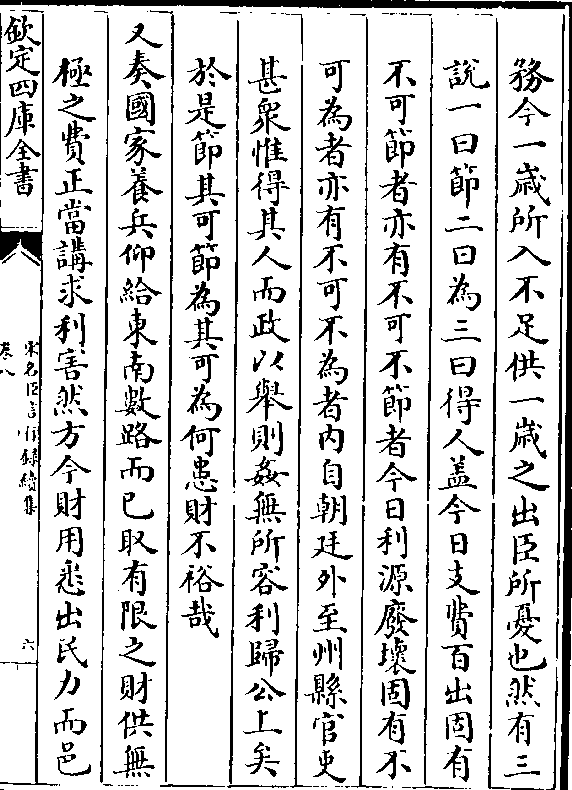 務今一歳所入不足供一歳之出臣所憂也然有三
說一曰節二曰為三曰得人蓋今日支費百出固有
不可節者亦有不可不節者今日利源廢壞固有不
可為者亦有不可不為者内自朝廷外至州縣官吏
甚衆惟得其人而政以舉則姦無所容利歸公上矣
於是節其可節為其可為何患財不裕哉
又奏國家養兵仰給東南數路而已取有限之財供無
極之費正當講求利害然方今財用悉出民力而邑
欽定四庫全書
宋名臣言行録續集
卷八
六